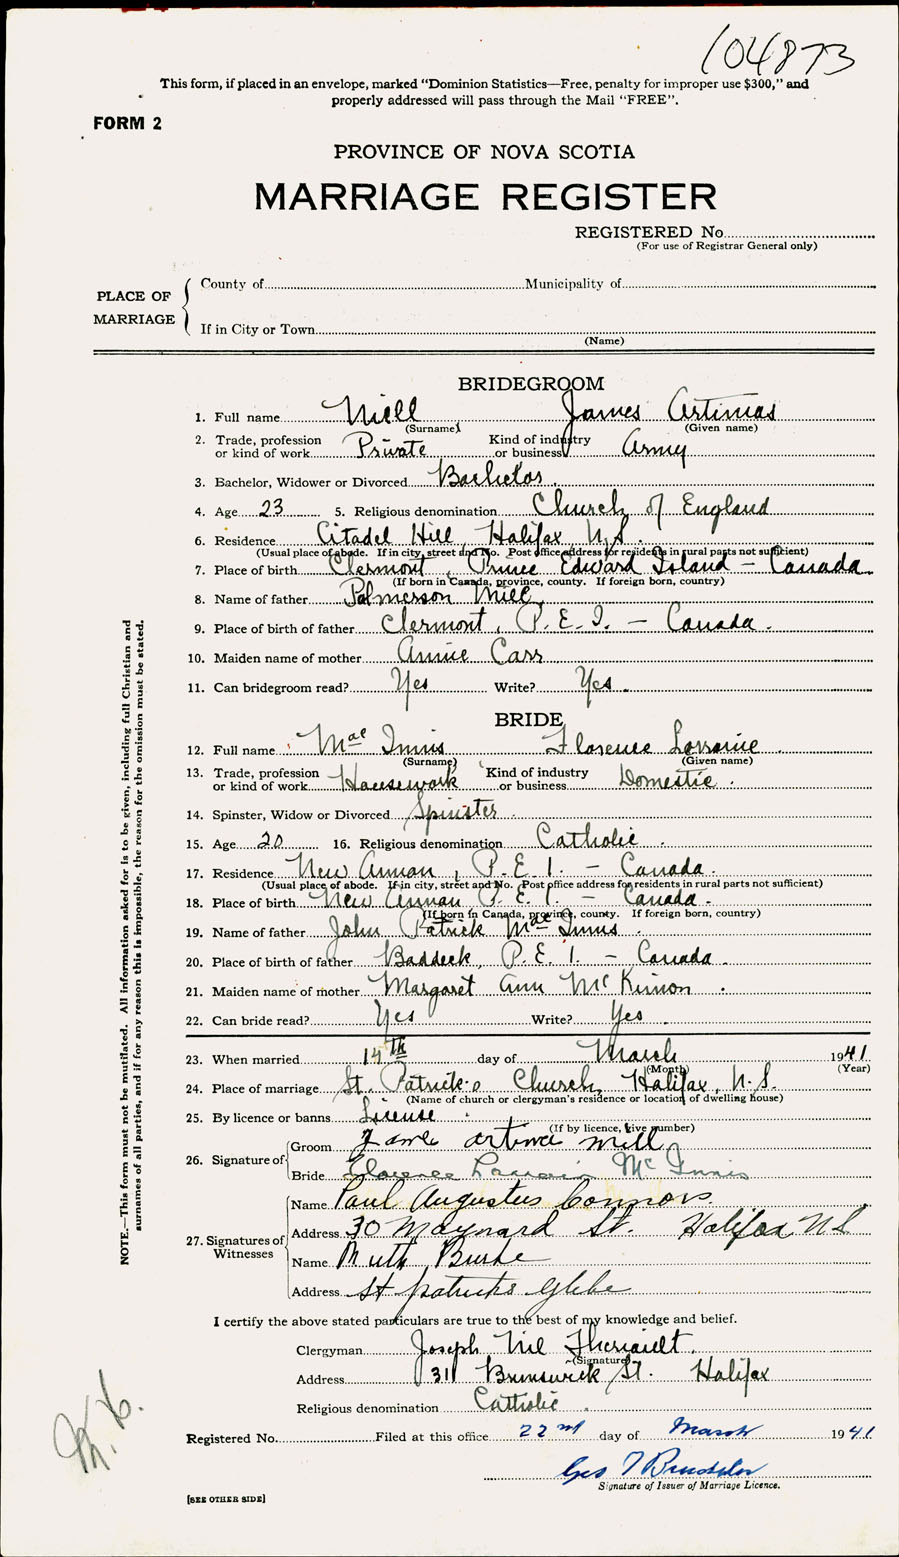 104873
This form, if placed in an envelope, marked “Dominion Statistics—Free, penalty for improper use $300,” and
properly addressed will pass through the Mail “FREE”.
FORM 2
PROVINCE OF NOVA SCOTIA
MARRIAGE REGISTER
REGISTERED No.
(For use of Registrar General only)
PLACE OF MARRIAGE
County of Municipality of
If in City or Town
(Name)
BRIDEGROOM
1. Full name Niell James Artimas
(Surname) (Given name)
2. Trade, profession or kind of work Private Kind of industry or business Army
3. Bachelor, Widower or Divorced Bachelor
4. Age 23 5. Religious denomination Church of England
6. Residence Citadel Hill, Halifax N.S.
(Usual place of abode. If in city, street and No. Post office address for residents in rural parts not sufficient)
7. Place of birth Clermont, Prince Edward Island — Canada
(If born in Canada, province, county. If foreign born, country)
8. Name of father Palmerson
9. Place of birth of father Clermont, P.E.I. — Canada.
10. Maiden name of mother Annie Carr
11. Can bridegroom read? Yes Write? Yes.
BRIDE
12. Full name MacInnis Florence Lorraine
(Surname) (Given name)
13. Trade, profession or kind of work Housework Kind of industry or business Domestic.
14. Spinster, Widow or Divorced Spinster.
15. Age 20 16. Religious denomination Catholic.
17. Residence New Annan, P.E.I. — Canada.
(Usual place of abode. If in city, street and No. Post office address for residents in rural parts not sufficient)
18. Place of birth New Annan P.E.I. — Canada.
(If born in Canada, province, county. If foreign born, country)
19. Name of father John Patrick MacInnis.
20. Place of birth of father Baddeck, P.E.I. — Canada.
21. Maiden name of mother Margaret Ann McKinnon.
22. Can bride read? Yes Write? Yes.
23. When married 14th day of March 1941
(Month) (Year)
24. Place of marriage St. Patrick's Church, Halifax, N.S.
(Name of church or clergyman's residence or location of dwelling house)
25. By licence or banns License.
(If by licence, give number)
26. Signature of Groom
Bride Florence Lorrain McInnis
27. Signatures of Witnesses
Name Paul Augustus Connors.
Address 30 Maynard St. Halifax NS
Name Ruth Burke
Address St Patricks Glebe
I certify the above stated particulars are true to the best of my knowledge and belief.
Clergyman Joseph Nil Theriault.
(Signature)
Address 31 Brunswick St. Halifax
Religious denomination Catholic.
Registered No. Filed at this office 22nd day of March 1941
Signature of Issuer of Marriage Licence.
[SEE OTHER SIDE]
NOTE.—This form must not be mutilated. All information asked for is to be given, including full Christian and
surnames of all parties, and if for any reason this is impossible, the reason for the omission must be stated.